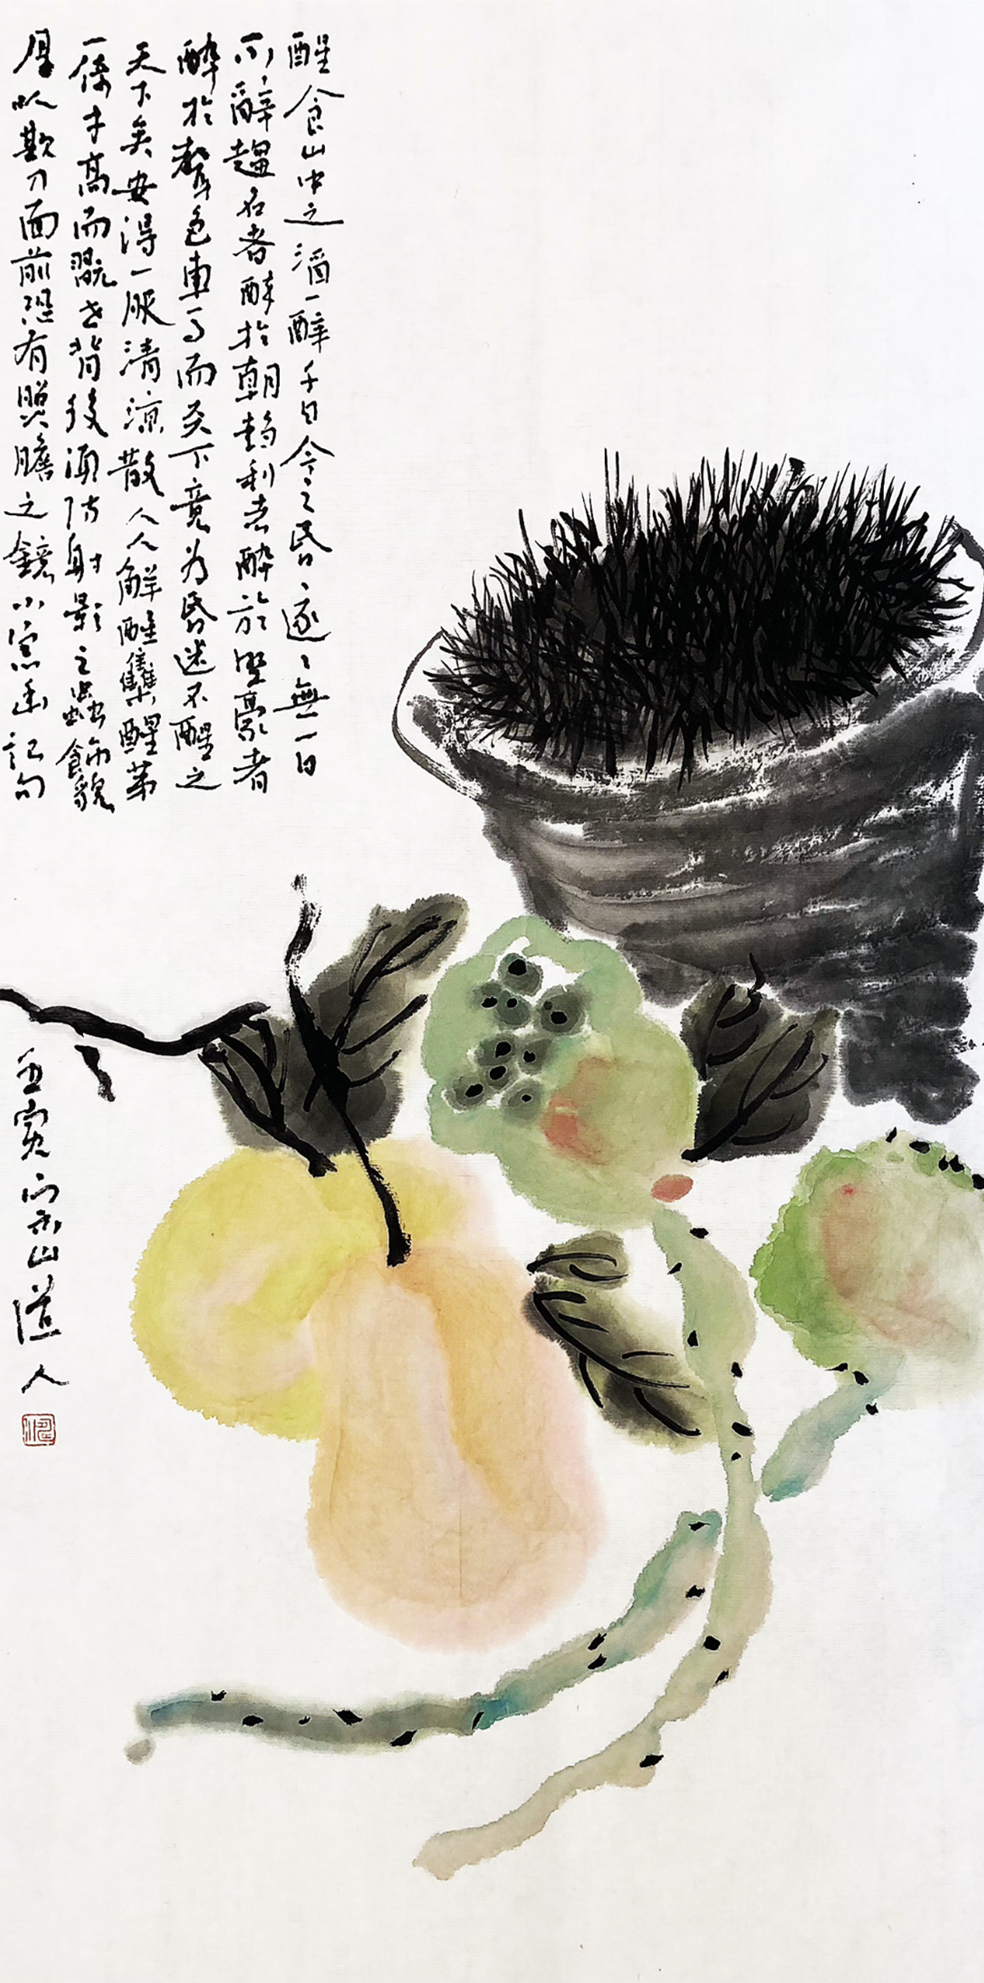 醒食山中之酒一醉千日今之昏〻逐〻無一日
不醉趨名者醉於朝趍利者醉於野豪者
醉於聲色車馬而天下竟為昏迷不醒之
天下矣安得一服清涼散人人解酲集醒第
一倚才高而翫世背後須防射影之蟲飾貌
厚以欺人面前恐有照膽之鏡小窗幽記句
壬寅 山道人